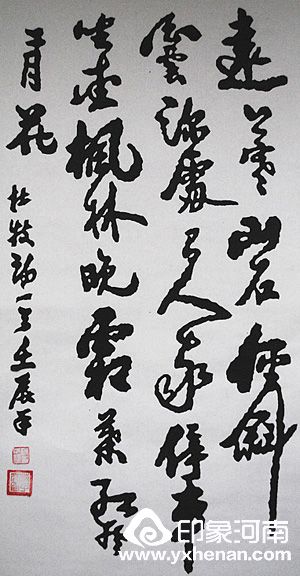 遠上寒山石徑斜
白雲深處有人家停車
坐愛楓林晚霜葉紅於
二月花 杜牧詩一首壬辰年
印象河南
www.yxhenan.com